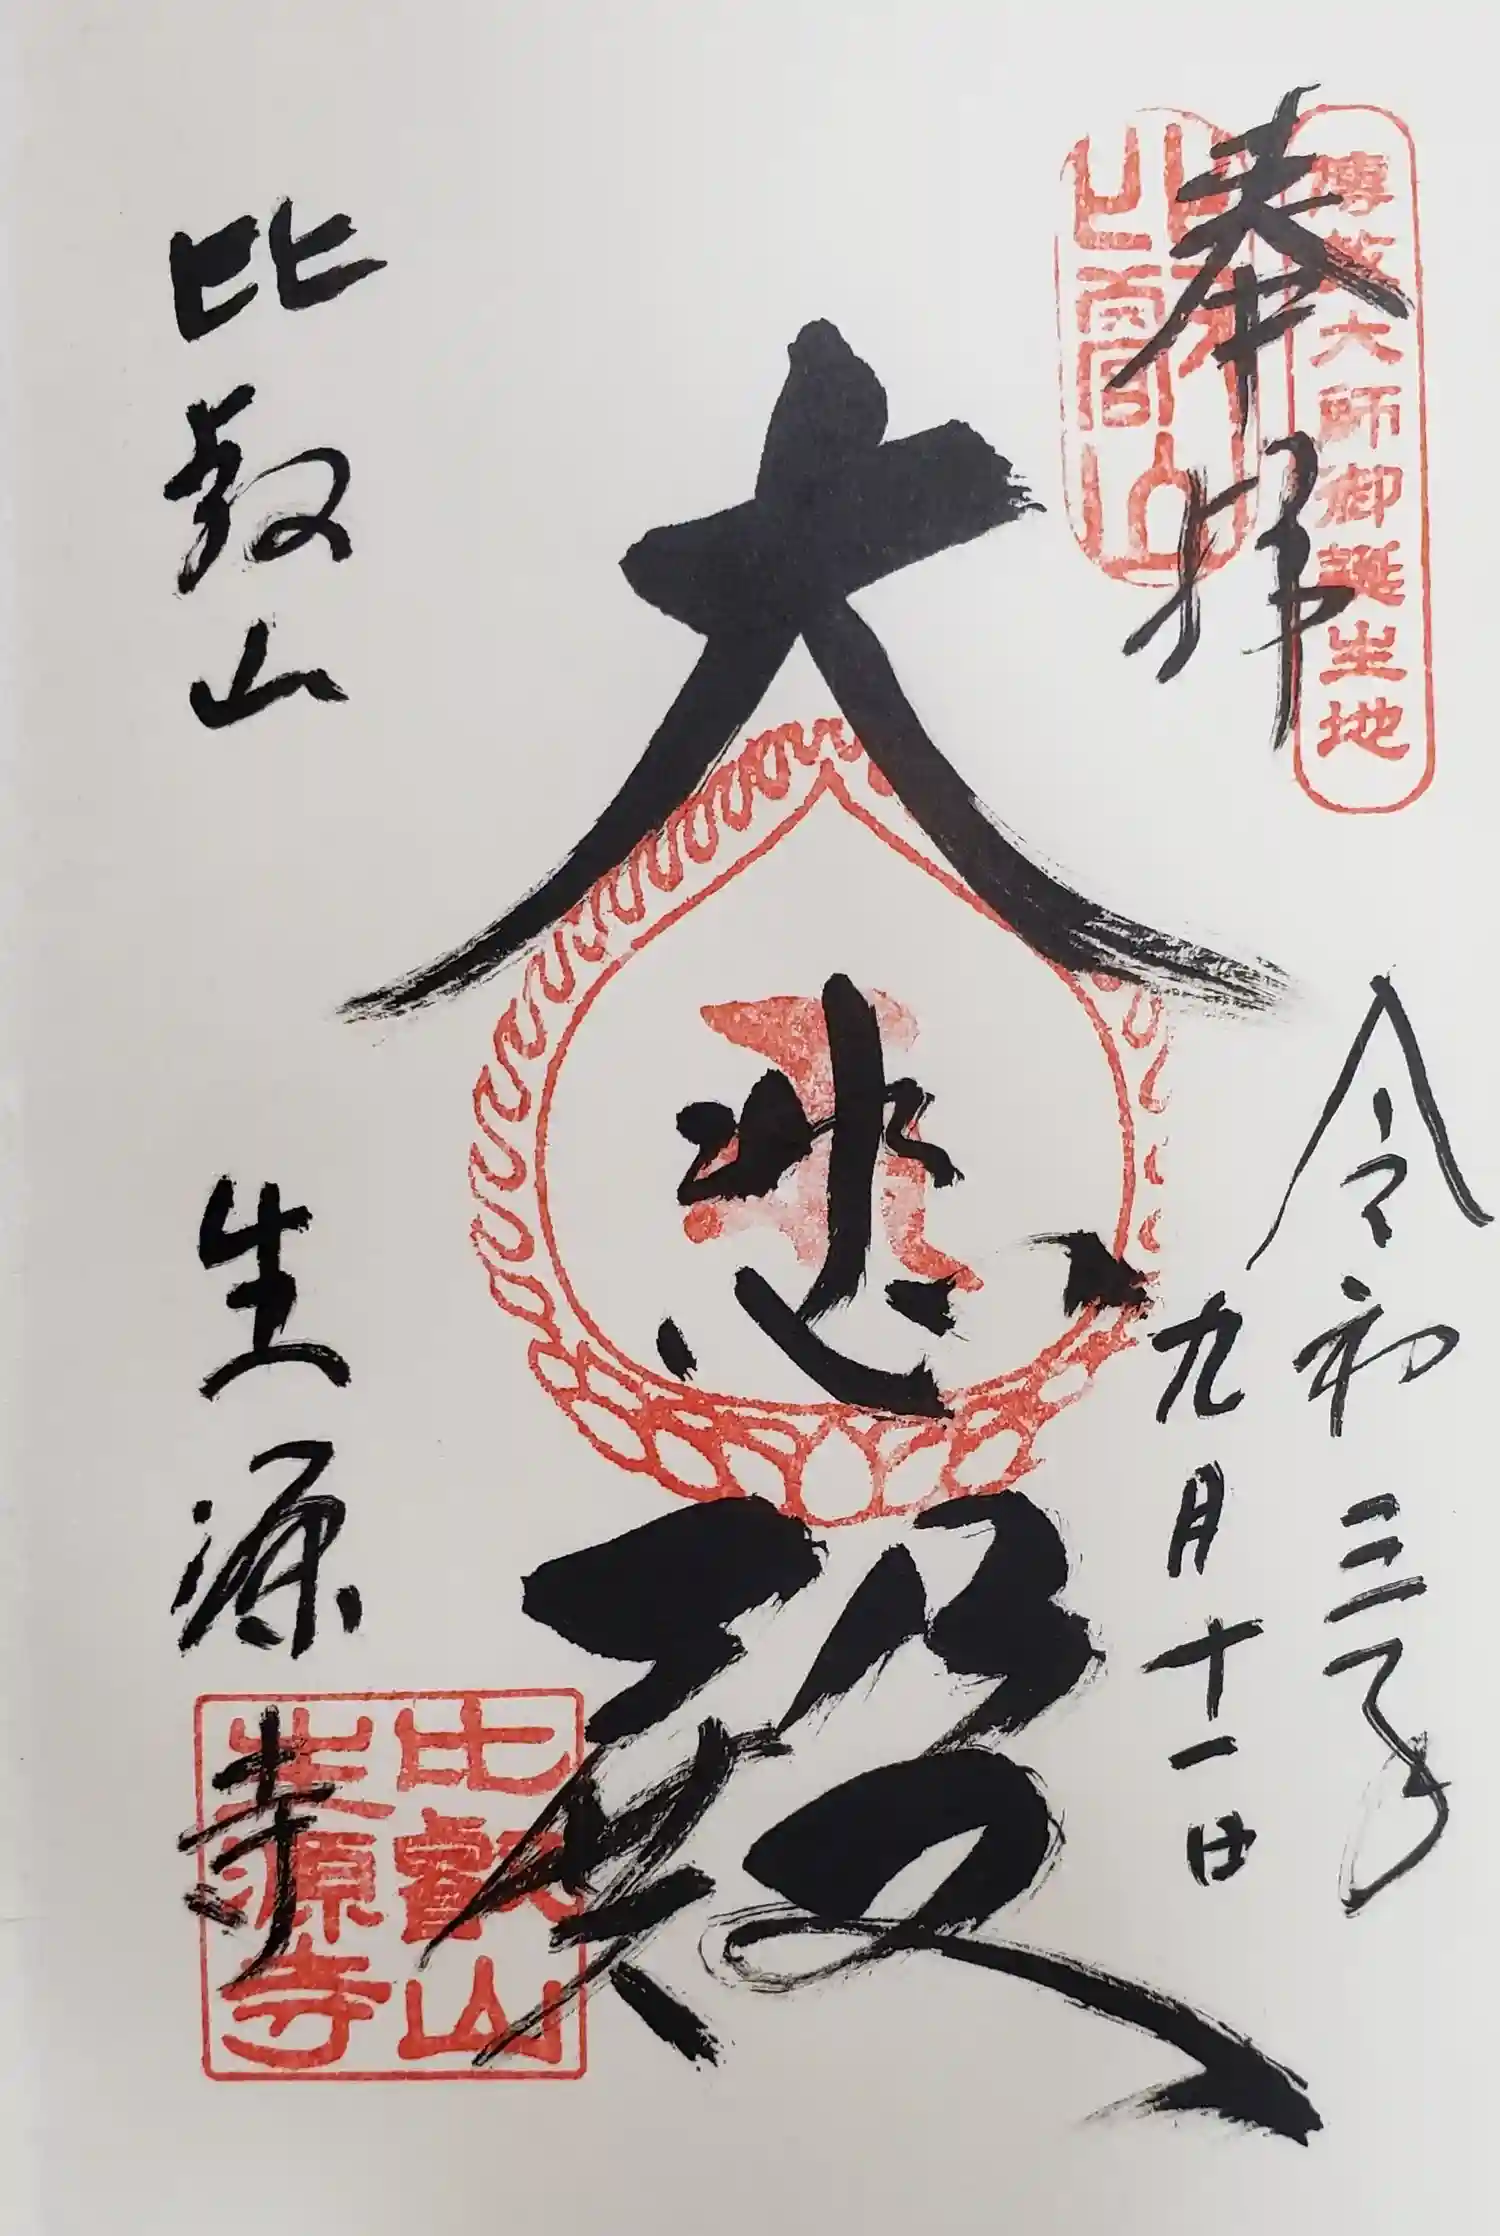 傳教大師御誕生地
奉拝
令和三年
九月十一日
大悲殿
比叡山 生源寺
比叡山
生源寺